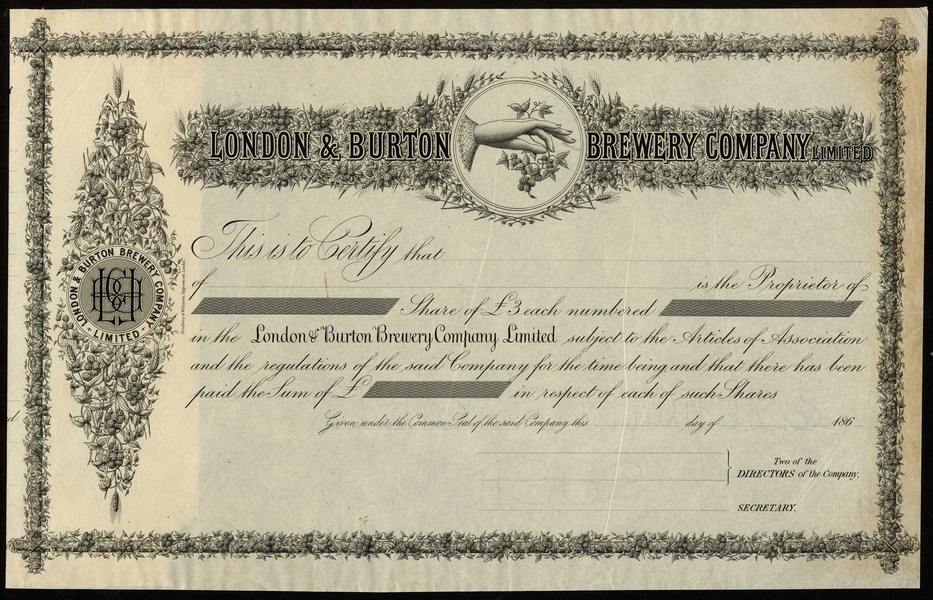 LONDON & BURTON BREWERY COMPANY LIMITED
This is to Certify that
of is the Proprietor of
Share of £3 each numbered
in the London & Burton Brewery Company Limited subject to the Articles of Association
and the regulations of the said Company for the time being, and that there has been
paid the Sum of £ in respect of each of such Shares
Given under the Common Seal of the said Company this day of 186
Two of the
DIRECTORS of the Company.
SECRETARY.
LONDON & BURTON BREWERY COMPANY, LIMITED